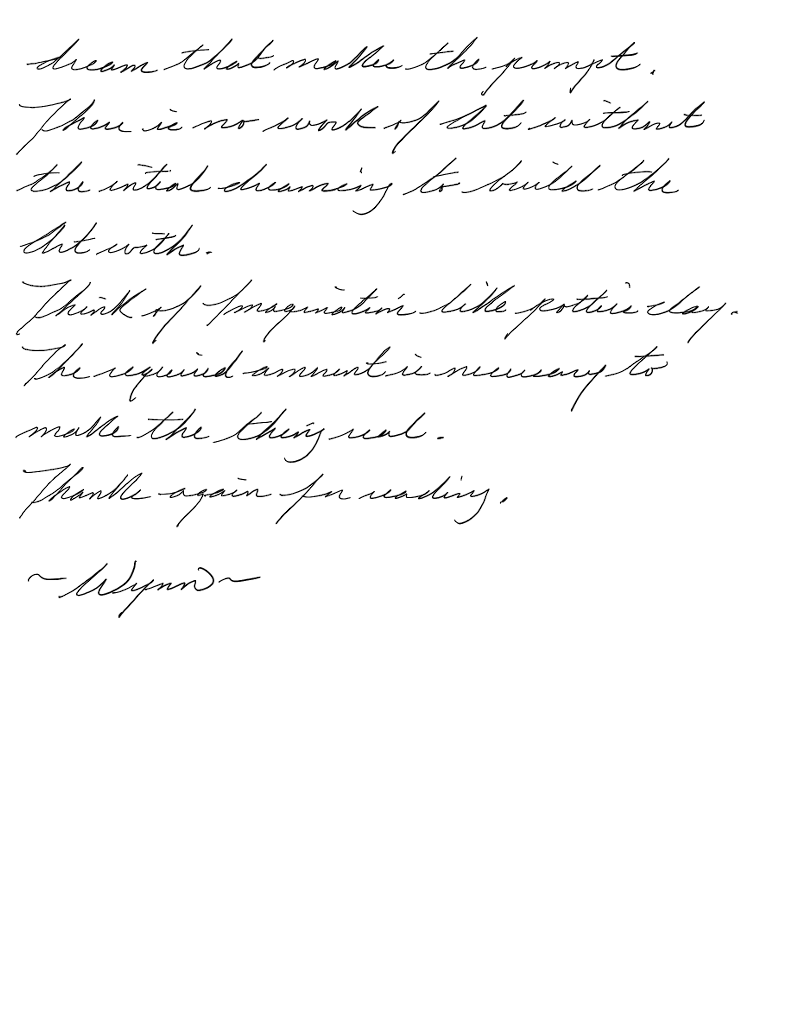 dream that makes the prompt.
There is no work of Art without
the intial dreaming to build the
Art with.
Think of Imagination like potters clay.
The required amount is necessary to
make the thing real.
Thanks again for reading.
~Wynn~